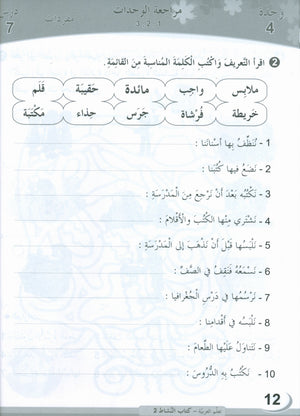 وحدة
4
مراجعة الوحدات
1 ، 2 ، 3
مفردات
درس
7
2 اقرأ التعريف وَاكْتُب الْكَلِمَةَ الْمُناسِبَةَ مِنَ القائِمَةِ.
ملابس واجب مائدة حقيبة قلم
خريطة فرشاة جرس حذاء مكتبة
1 - نُنَظِّفُ بِها أَسْنانَنا :
2 - نَضَعُ فيها كُتُبَنا :
3 - نَكْتُبُه بَعْدَ أَنْ نَرْجِعَ مِنَ الْمَدْرَسَةِ :
4 - نَشْتَري مِنْها الْكُتُبَ وَالْأَقْلامَ :
5 - نَلْبَسُها قَبْلَ أَنْ نَذْهَبَ إِلى الْمَدْرَسَةِ :
6 - نَسْمَعُه فَنَقِفُ في الصَّفِّ :
7 - نَرْسُمُها في دَرْسِ الْجُغْرافيا :
8 - نَلْبَسُه في أَقْدامِنا :
9 - نَتَناوَلُ عَلَيْها الطَّعامَ :
10 - نَكْتُبُ بِهِ الدُّروسَ :
تعلم العربية - كتاب النشاط 2
12